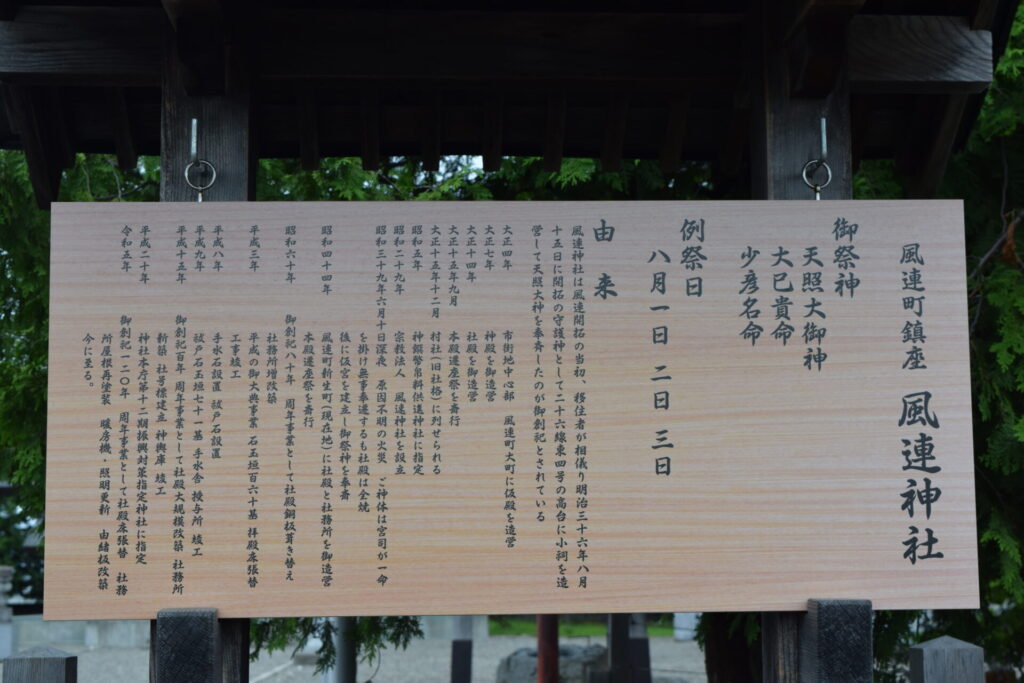 風連町鎮座 風連神社
御祭神
天照大御神
大巳貴命
少彦名命
例祭日
八月一日 二日 三日
由来
風連神社は風連開拓の当初、移住者が相儀り明治三十六年八月
十五日に開拓の守護神として二十六線東四号の高台に小祠を造
営して天照大神を奉斎したのが御創祀とされている
大正四年 市街地中心部 風連町大町に仮殿を造営
大正七年 神殿を御造営
大正十四年 社殿を御造営
大正十五年九月 本殿遷座祭を斎行
大正十五年十二月 村社(旧社格)に列せられる
昭和五年 神饌幣帛料供進神社に指定
昭和二十九年 宗教法人 風連神社を設立
昭和三十九年六月十日深夜 原因不明の火災 ご神体は宮司が一命
を掛け無事奉遷するも社殿は全焼
後に仮宮を建立し御祭神を奉斎
昭和四十四年 風連町新生町(現在地)に社殿と社務所を御造営
本殿遷座祭を斎行
昭和六十年 御創祀八十年 周年事業として社殿銅板葺き替え
社務所増改築
平成三年 平成の御大典事業 石玉垣百六十基 拝殿床張替
工事竣工
平成八年 手水石設置 祓戸石設置
平成九年 祓戸石玉垣七十一基 手水舎 授与所 竣工
平成十五年 御創祀百年 周年事業として社殿大規模改築 社務所
新築 社号標建立 神輿庫 竣工
平成二十年 神社本庁第十二期振興対策指定神社に指定
令和五年 御創祀一二〇年 周年事業として社殿床張替 社務
所屋根再塗装 暖房機 照明更新 由緒板改築
今に至る。